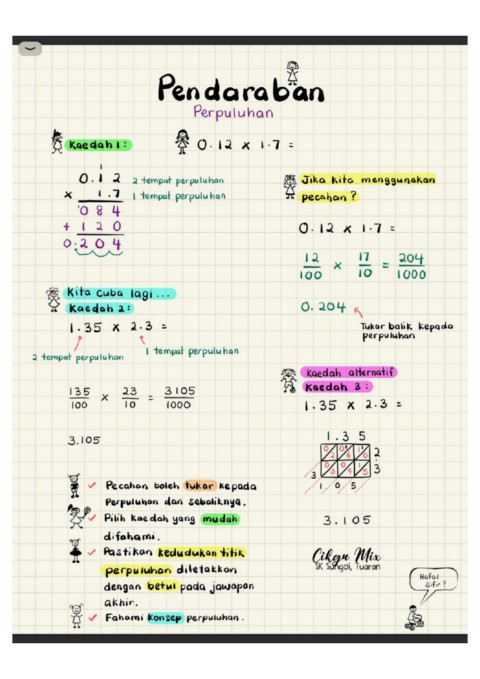 Pendaraban
Perpuluhan
Kaedah 1:
0.12 x 1.7 =
1
0.12 2 tempat perpuluhan
x 1.7 1 tempat perpuluhan
084
+ 120
0.204
Jika kita menggunakan
pecahan?
0.12 x 1.7 =
12/100 x 17/10 = 204/1000
0.204
Tukar balik kepada
perpuluhan
Kita cuba lagi...
Kaedah 2:
1.35 x 2.3 =
2 tempat perpuluhan
1 tempat perpuluhan
135/100 x 23/10 = 3105/1000
3.105
Kaedah alternatif
Kaedah 3:
1.35 x 2.3 =
1.35
2
.
3
3
1 0 5
3.105
✓ Pecahan boleh tukar kepada
Perpuluhan dan sebaliknya.
✓ Pilih kaedah yang mudah
difahami.
✓ Pastikan kedudukan titik
perpuluhan diletakkan
dengan betul pada jawapan
akhir.
✓ Fahami konsep perpuluhan.
Cikgu Mix
SK Sungoi, Tuaran
Hafal
Sifir?